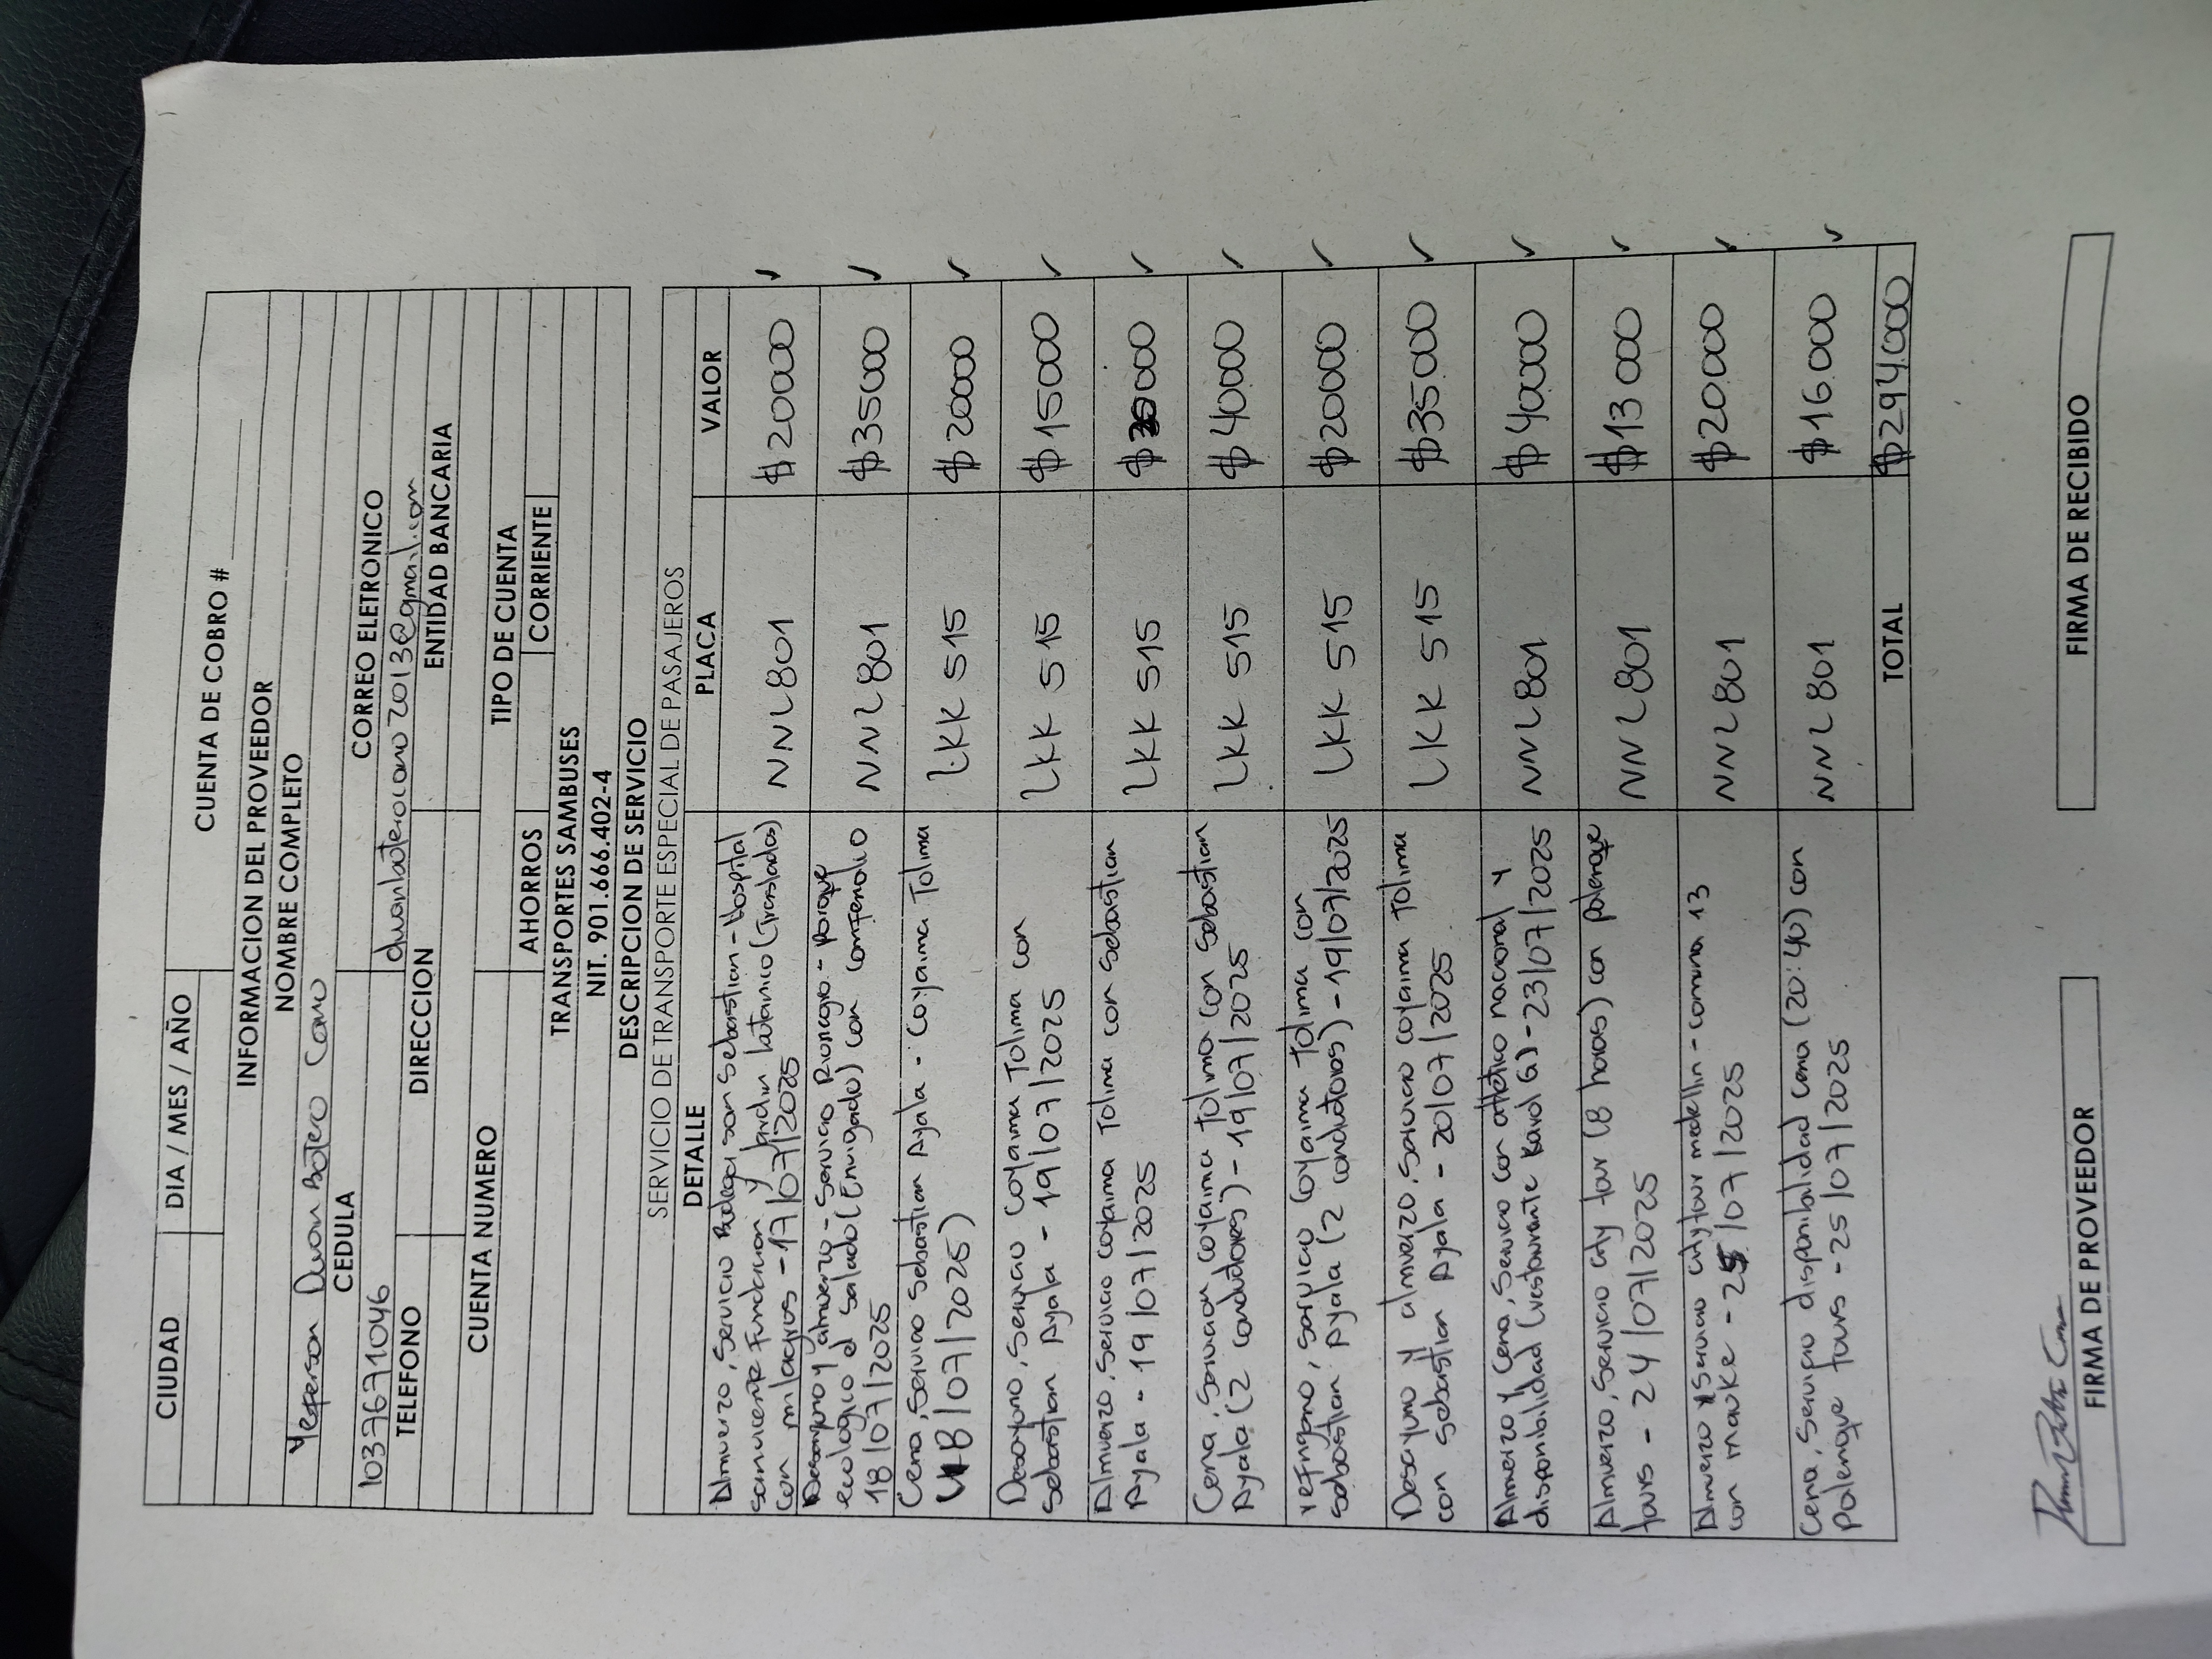 CIUDAD DIA / MES / AÑO CUENTA DE COBRO # ________
INFORMACION DEL PROVEEDOR
NOMBRE COMPLETO
Yeferson Duvan Botero Cano
CEDULA CORREO ELETRONICO
1037671046 duvanboterocano2013@gmail.com
TELEFONO DIRECCION ENTIDAD BANCARIA
CUENTA NUMERO TIPO DE CUENTA
AHORROS CORRIENTE
TRANSPORTES SAMBUSES
NIT. 901.666.402-4
DESCRIPCION DE SERVICIO
SERVICIO DE TRANSPORTE ESPECIAL DE PASAJEROS
DETALLE PLACA VALOR
Almuerzo, Servicio Bodega san Sebastian - Hospital
sanvicente Fundacion y jardin botanico (Traslados)
con milagros - 17/07/2025 NNL801 $20000 ✓
Desayuno y almuerzo - Servicio Rionegro - Parque
ecologico el salado (Envigado) con comfenalco
18/07/2025 NNL801 $35000 ✓
Cena, Servicio Sebastian Ayala - Coyaima Tolima
18/07/2025) LKK 515 $20000 ✓
Desayuno, Servicio Coyaima Tolima con
Sebastian Ayala - 19/07/2025 LKK 515 $15000 ✓
Almuerzo, Servicio coyaima Tolima con Sebastian
Ayala - 19/07/2025 LKK 515 $20000 ✓
Cena, Servicio coyaima Tolima con Sebastian
Ayala (2 conductores) - 19/07/2025 LKK 515 $40000 ✓
refrigerio, servicio Coyaima Tolima con
sebastian Ayala (2 conductores) - 19/07/2025 LKK 515 $20000 ✓
Desayuno y almuerzo, servicio coyaima Tolima
con sebastian Ayala - 20/07/2025 LKK 515 $35000 ✓
Almuerzo y Cena, Servicio con atletico nacional y
disponibilidad (restaurante Karol G) - 23/07/2025 NNL801 $40000 ✓
Almuerzo, Servicio city tour (8 horas) con palenque
tours - 24/07/2025 NNL801 $13000 ✓
Almuerzo servicio city tour medellin - comuna 13
con mauke - 25/07/2025 NNL801 $20.000 ✓
Cena, Servicio disponibilidad cena (20:40) con
Palenque tours - 25/07/2025 NNL801 $16.000 ✓
TOTAL $294.000
FIRMA DE PROVEEDOR FIRMA DE RECIBIDO